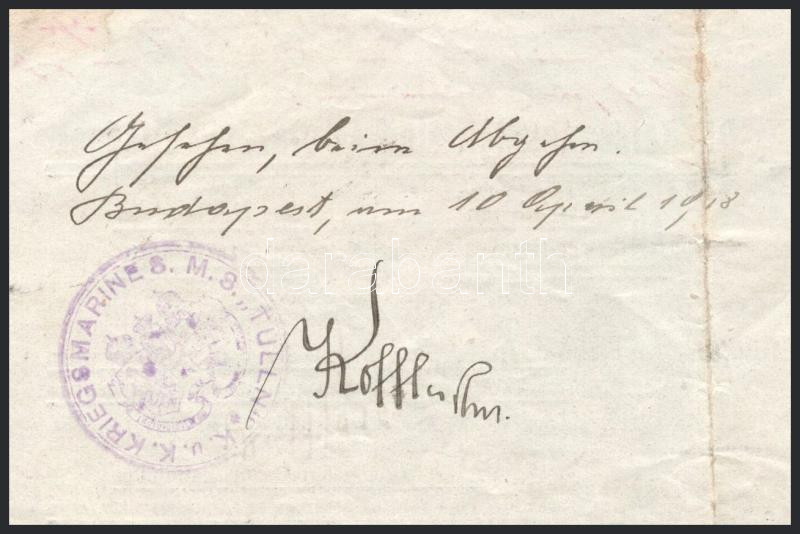 Gesehen, beim Abgehn.
Budapest, am 10 April 1918
K. u. K. KRIEGSMARINE S. M. S. „TULLN“
darabanth